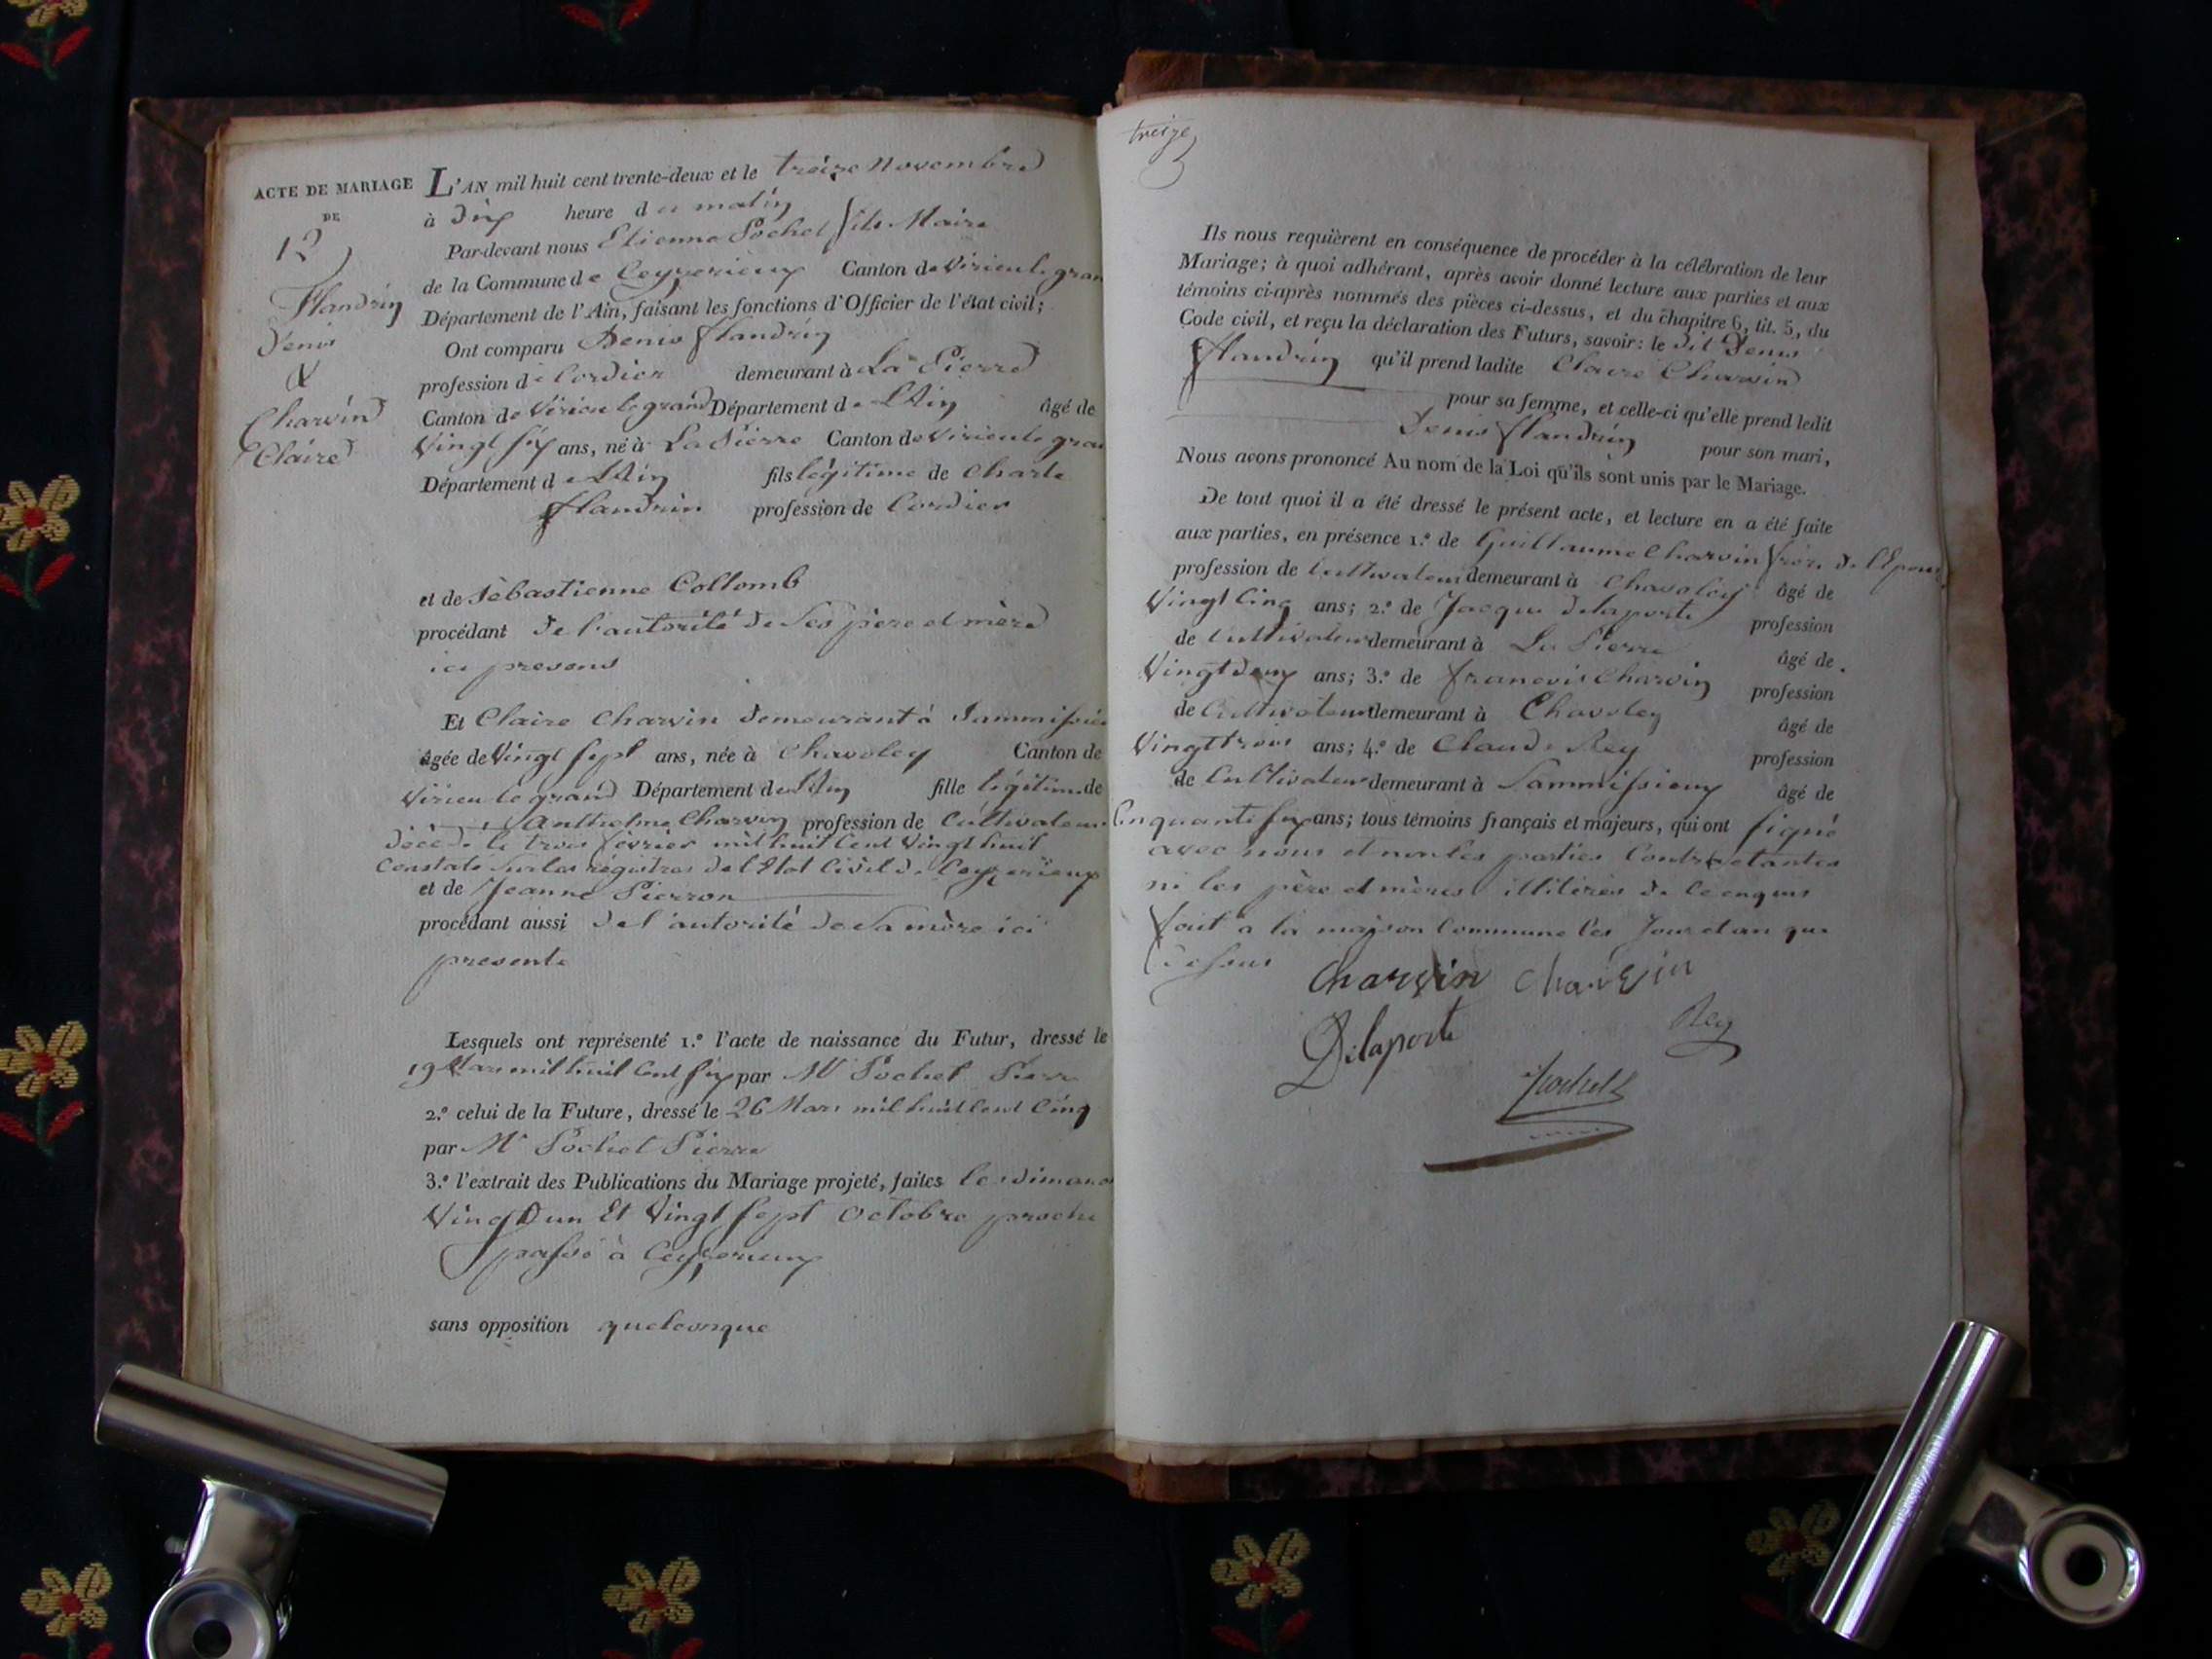 ACTE DE MARIAGE
DE
12
Flandrin
Denis
&
Charvin
Claire
L'AN mil huit cent trente-deux et le treize Novembre
à dix heure du matin
Par-devant nous Etienne Pochet fils Maire
de la Commune de Ceyzerieux Canton de Virieu le gran
Département de l'Ain, faisant les fonctions d'Officier de l'état civil;
Ont comparu Denis flandrin
profession de Cordier demeurant à La Pierre
Canton de Virieu le grand Département de L'Ain âgé de
Vingt six ans, né à La Pierre Canton de Virieu le gran
Département de L'Ain fils légitime de Charle
flandrin profession de Cordier
et de Sébastienne Collomb
procédant de l'autorité de Ses père et mère
ici presens
Et Claire Charvin demeurant à Sammissieu
âgée de Vingt sept ans, née à Chavoley Canton de
Virieu le grand Département de L'Ain fille légitime de
Anthelme Charvin profession de Cultivateur
décédé le trois fevrier mil huit Cent Vingt huit
Constaté sur les régistres de l'Etat Civil de Ceyzerieux
et de Jeanne Pierron
procédant aussi de l'autorité de Sa mère ici
presente
Lesquels ont représenté 1.º l'acte de naissance du Futur, dressé le
19 Mars mil huit Cent six par Mr Pochet Pierre
2.º celui de la Future, dressé le 26 Mars mil huit Cent Cinq
par Mr Pochet Pierre
3.º l'extrait des Publications du Mariage projeté, faites les dimanc
Vingt un Et Vingt sept octobre proche
passé à Ceyzerieux
sans opposition quelconque
treize
Ils nous requièrent en conséquence de procéder à la célébration de leur
Mariage; à quoi adhérant, après avoir donné lecture aux parties et aux
témoins ci-après nommés des pièces ci-dessus, et du chapitre 6, tit. 5, du
Code civil, et reçu la déclaration des Futurs, savoir: le dit Denis
flandrin qu'il prend ladite Claire Charvin
pour sa femme, et celle-ci qu'elle prend ledit
Denis flandrin pour son mari,
Nous avons prononcé Au nom de la Loi qu'ils sont unis par le Mariage.
De tout quoi il a été dressé le présent acte, et lecture en a été faite
aux parties, en présence 1.º de Guillaume Charvin frère de l'Epouse
profession de Cultivateur demeurant à Chavoley âgé de
Vingt Cinq ans; 2.º de Jacque Delaporte profession
de Cultivateur demeurant à La Pierre âgé de
Vingt deux ans; 3.º de francois Charvin profession
de Cultivateur demeurant à Chavoley âgé de
Vingt trois ans; 4.º de Claude Rey profession
de Cultivateur demeurant à Sammissieux âgé de
Cinquante six ans; tous témoins français et majeurs, qui ont signé
avec nous et non les parties Contractantes
ni les père et mères illitérés de ce enquis
fait à la maison Commune les Jour et an que
dessus
Charvin Charvin
Delaporte Rey
Pochet